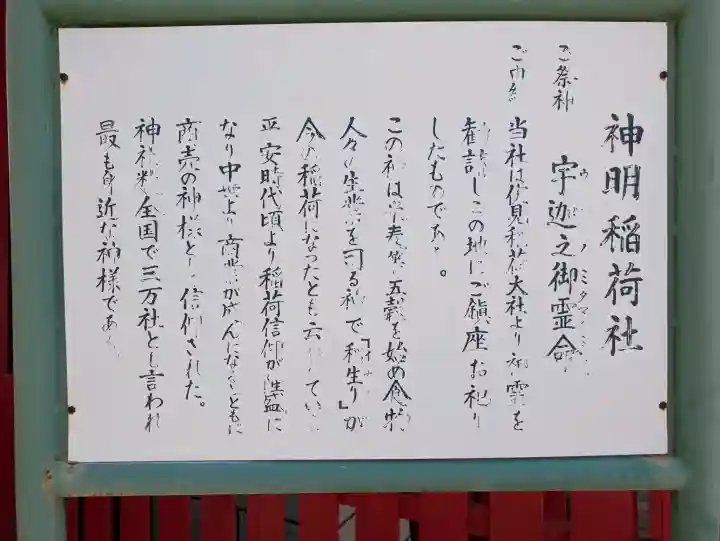 神明稲荷社
ご祭神 宇迦之御霊命
ウ ノミタマ ミ
ご由
当社は伏見稲荷大社より神霊を
勧請しこの地にご鎮座お祀り
したものであ 。
この神は 五穀を始め食物
人々の生業を司る神で「稲生り」が
今の稲荷になったとも云 てい
平安時代頃より稲荷信仰が盛に
なり中世より商業が盛んになるとともに
商売の神様とし信仰された。
神社数全国で三万社とも言われ
最も身近な神様であ